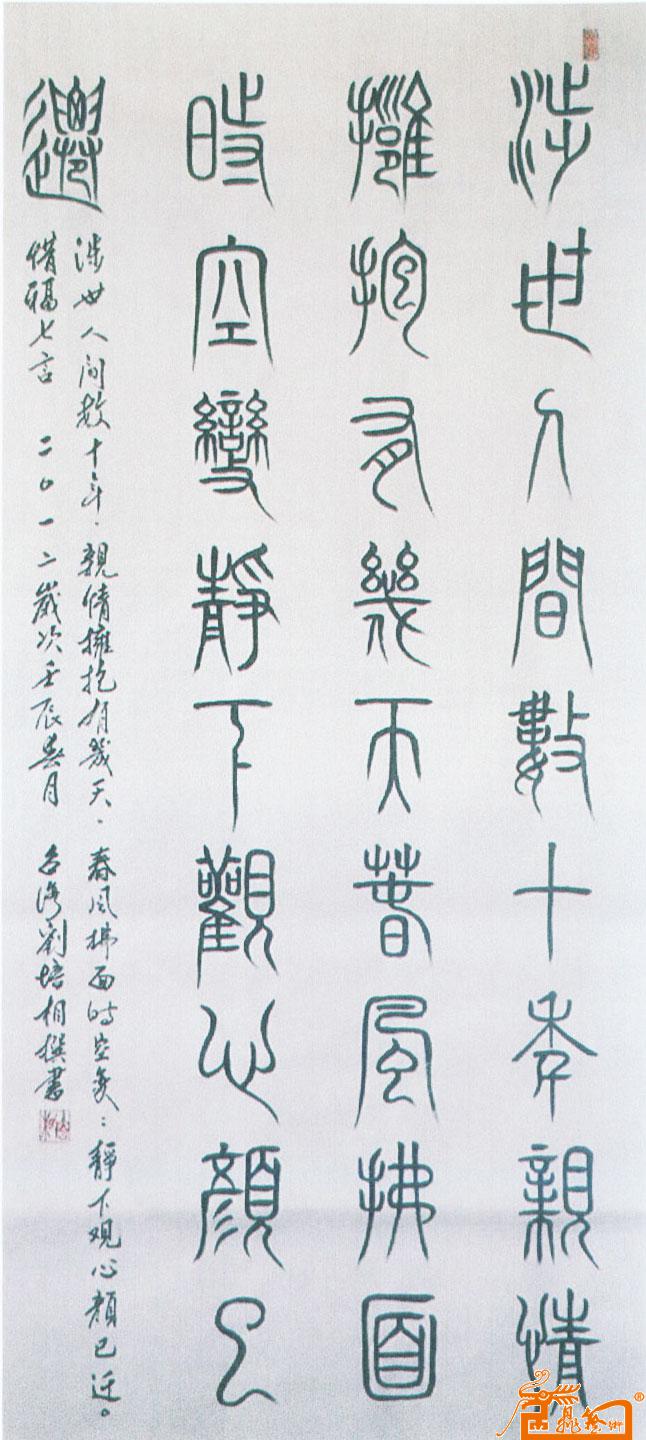 涉世人間數十年親情
擁抱有幾天春風拂面
時空變靜下觀心顏已
遷
涉世人间數十年，親情擁抱有幾天，春风拂面时空变；靜下观心顏已迁。
惜福七言 二〇一二歲次壬辰春月 台湾劉培桐撰書